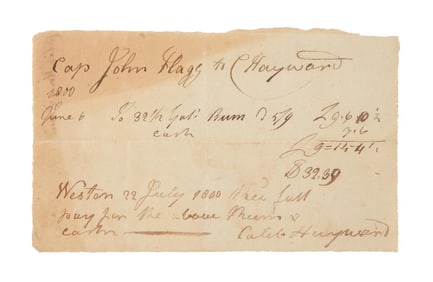 Cap John Flagg to C Hayward
1800
June 6 To 32½ Gals Rum @ 5/9 £9-6-10½
cash 7-6
£9=14-4½
D 32.39
Weston 22 July 1800 Recd full
pay for the above Rum &
cash Caleb Hayward